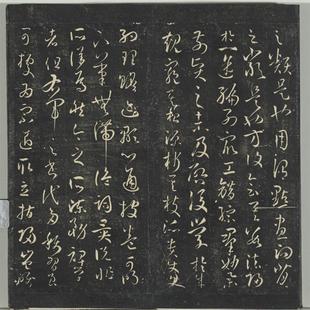 之類是也用謂點畫向背
之類是也方復會其數法歸
於一途編列眾工錯綜群妙舉
前賢之未及啟後學於成
規窺其根源析其枝派貴使文
約理贍迹顯心通披卷可明
下筆無滯詭詞異說非
所詳焉然今之所陳務裨學
者但右軍之書代多稱習良
可據為宗匠取立指歸豈唯